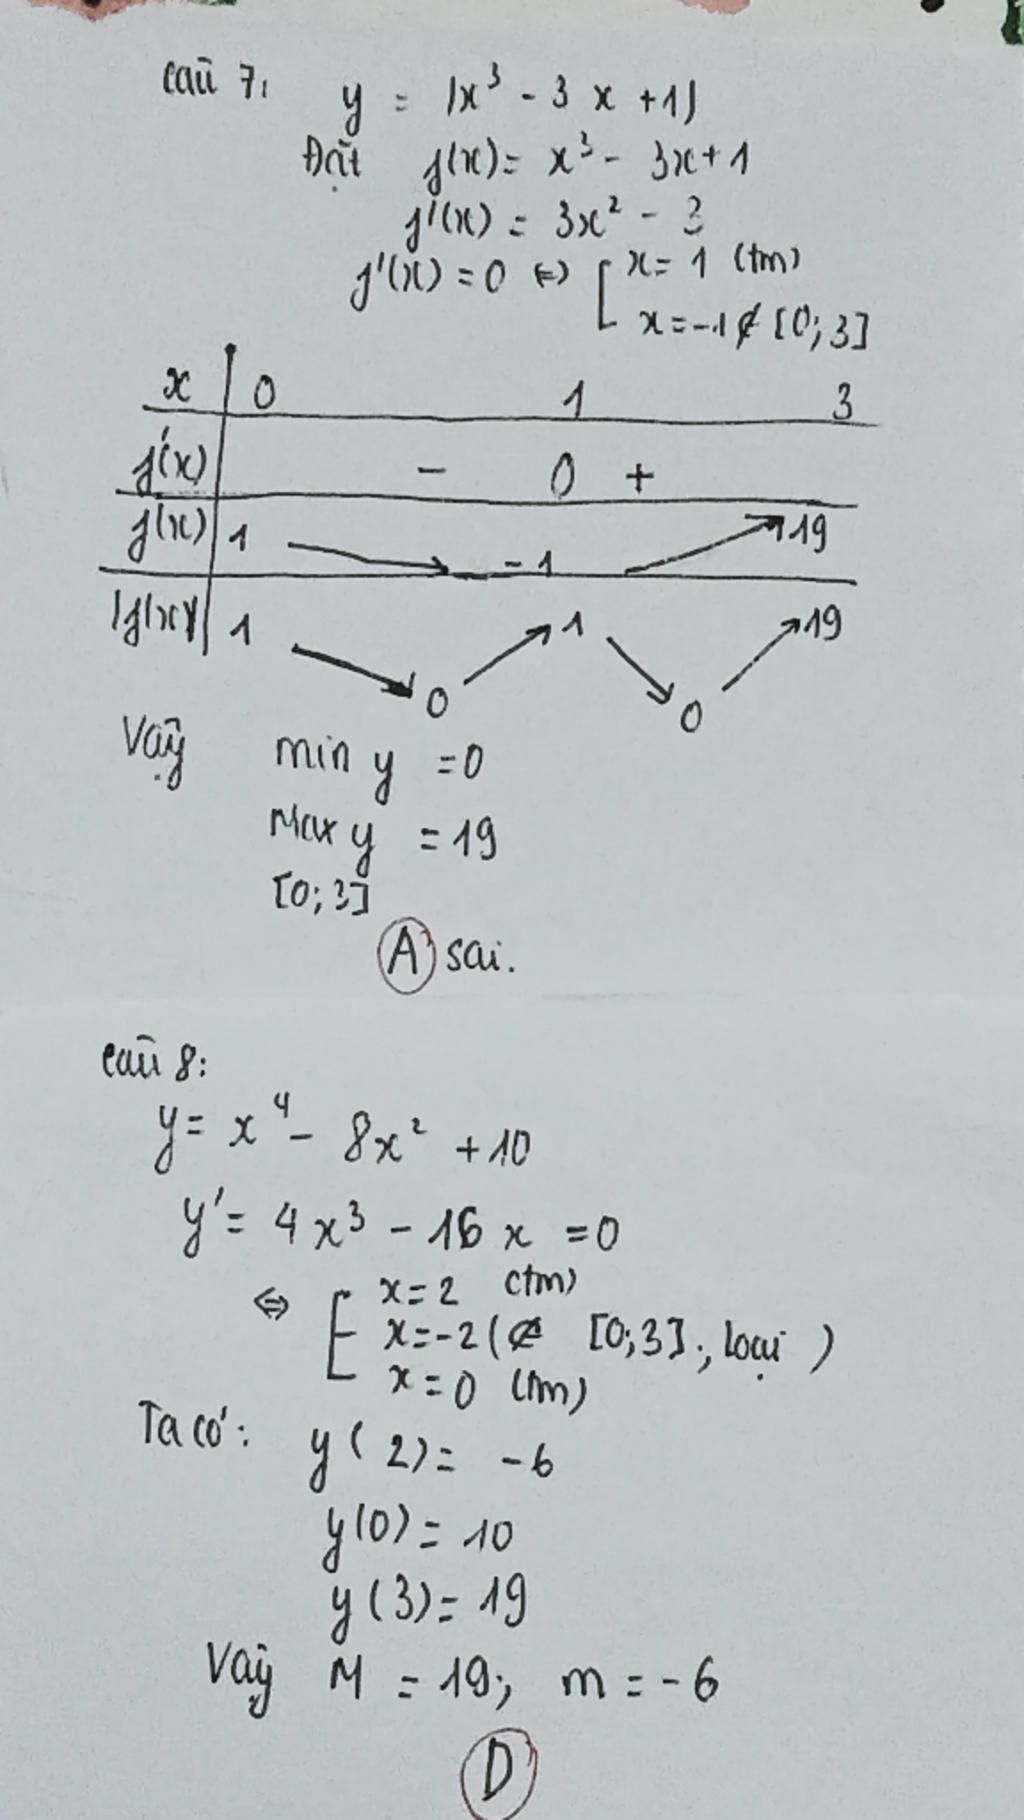 Câu 7:
y = |x³ - 3x + 1|
Đặt f(x) = x³ - 3x + 1
f'(x) = 3x² - 3
f'(x) = 0 ⇔ [ x = 1 (tm)
x = -1 ∉ [0; 3]
x 0 1 3
f'(x) - 0 +
f(x) 1 -1 19
|f(x)| 1 0 1 0 19
Vậy min y = 0
Max y = 19
[0; 3]
A sai.
Câu 8:
y = x⁴ - 8x² + 10
y' = 4x³ - 16x = 0
⇔ [ x = 2 (tm)
x = -2 (∉ [0; 3], loại)
x = 0 (tm)
Ta có: y(2) = -6
y(0) = 10
y(3) = 19
Vậy M = 19; m = -6
D